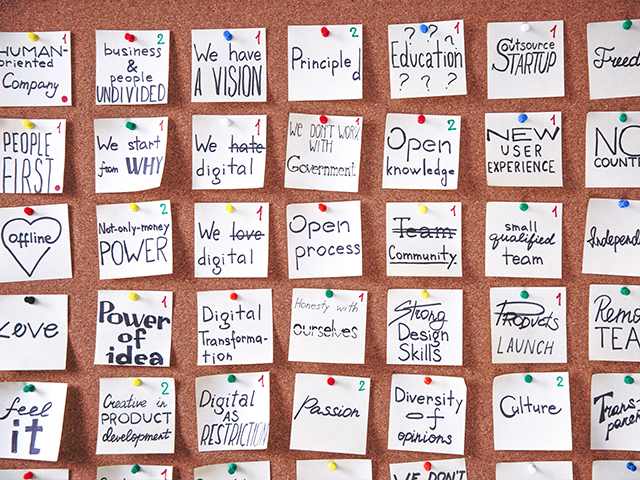 HUMAN-
oriented
Company
1
business
&
people
UNDIVIDED
2
We have
A VISION
1
Principled
2
? ? ?
Education
? ? ?
1
Outsource
STARTUP
1
PEOPLE
FIRST
1
We start
from WHY
2
We hate
digital
1
We DON'T WORK
WITH
Government
1
Open
knowledge
2
NEW
USER
EXPERIENCE
1
NO
offline
1
Not-only-money
POWER
2
We love
digital
1
Open
process
1
Team
Community
1
small
qualified
team
1
Love
Power
of
idea
1
Digital
Transforma-
tion
Honesty with
ourselves
1
Strong
Design
Skills
Products
LAUNCH
1
TEAM
feel
it
2
Creative in
PRODUCT
development
2
Digital
AS
RESTRICTION
1
Passion
2
Diversity
of
opinions
Culture
2
WE DON'T